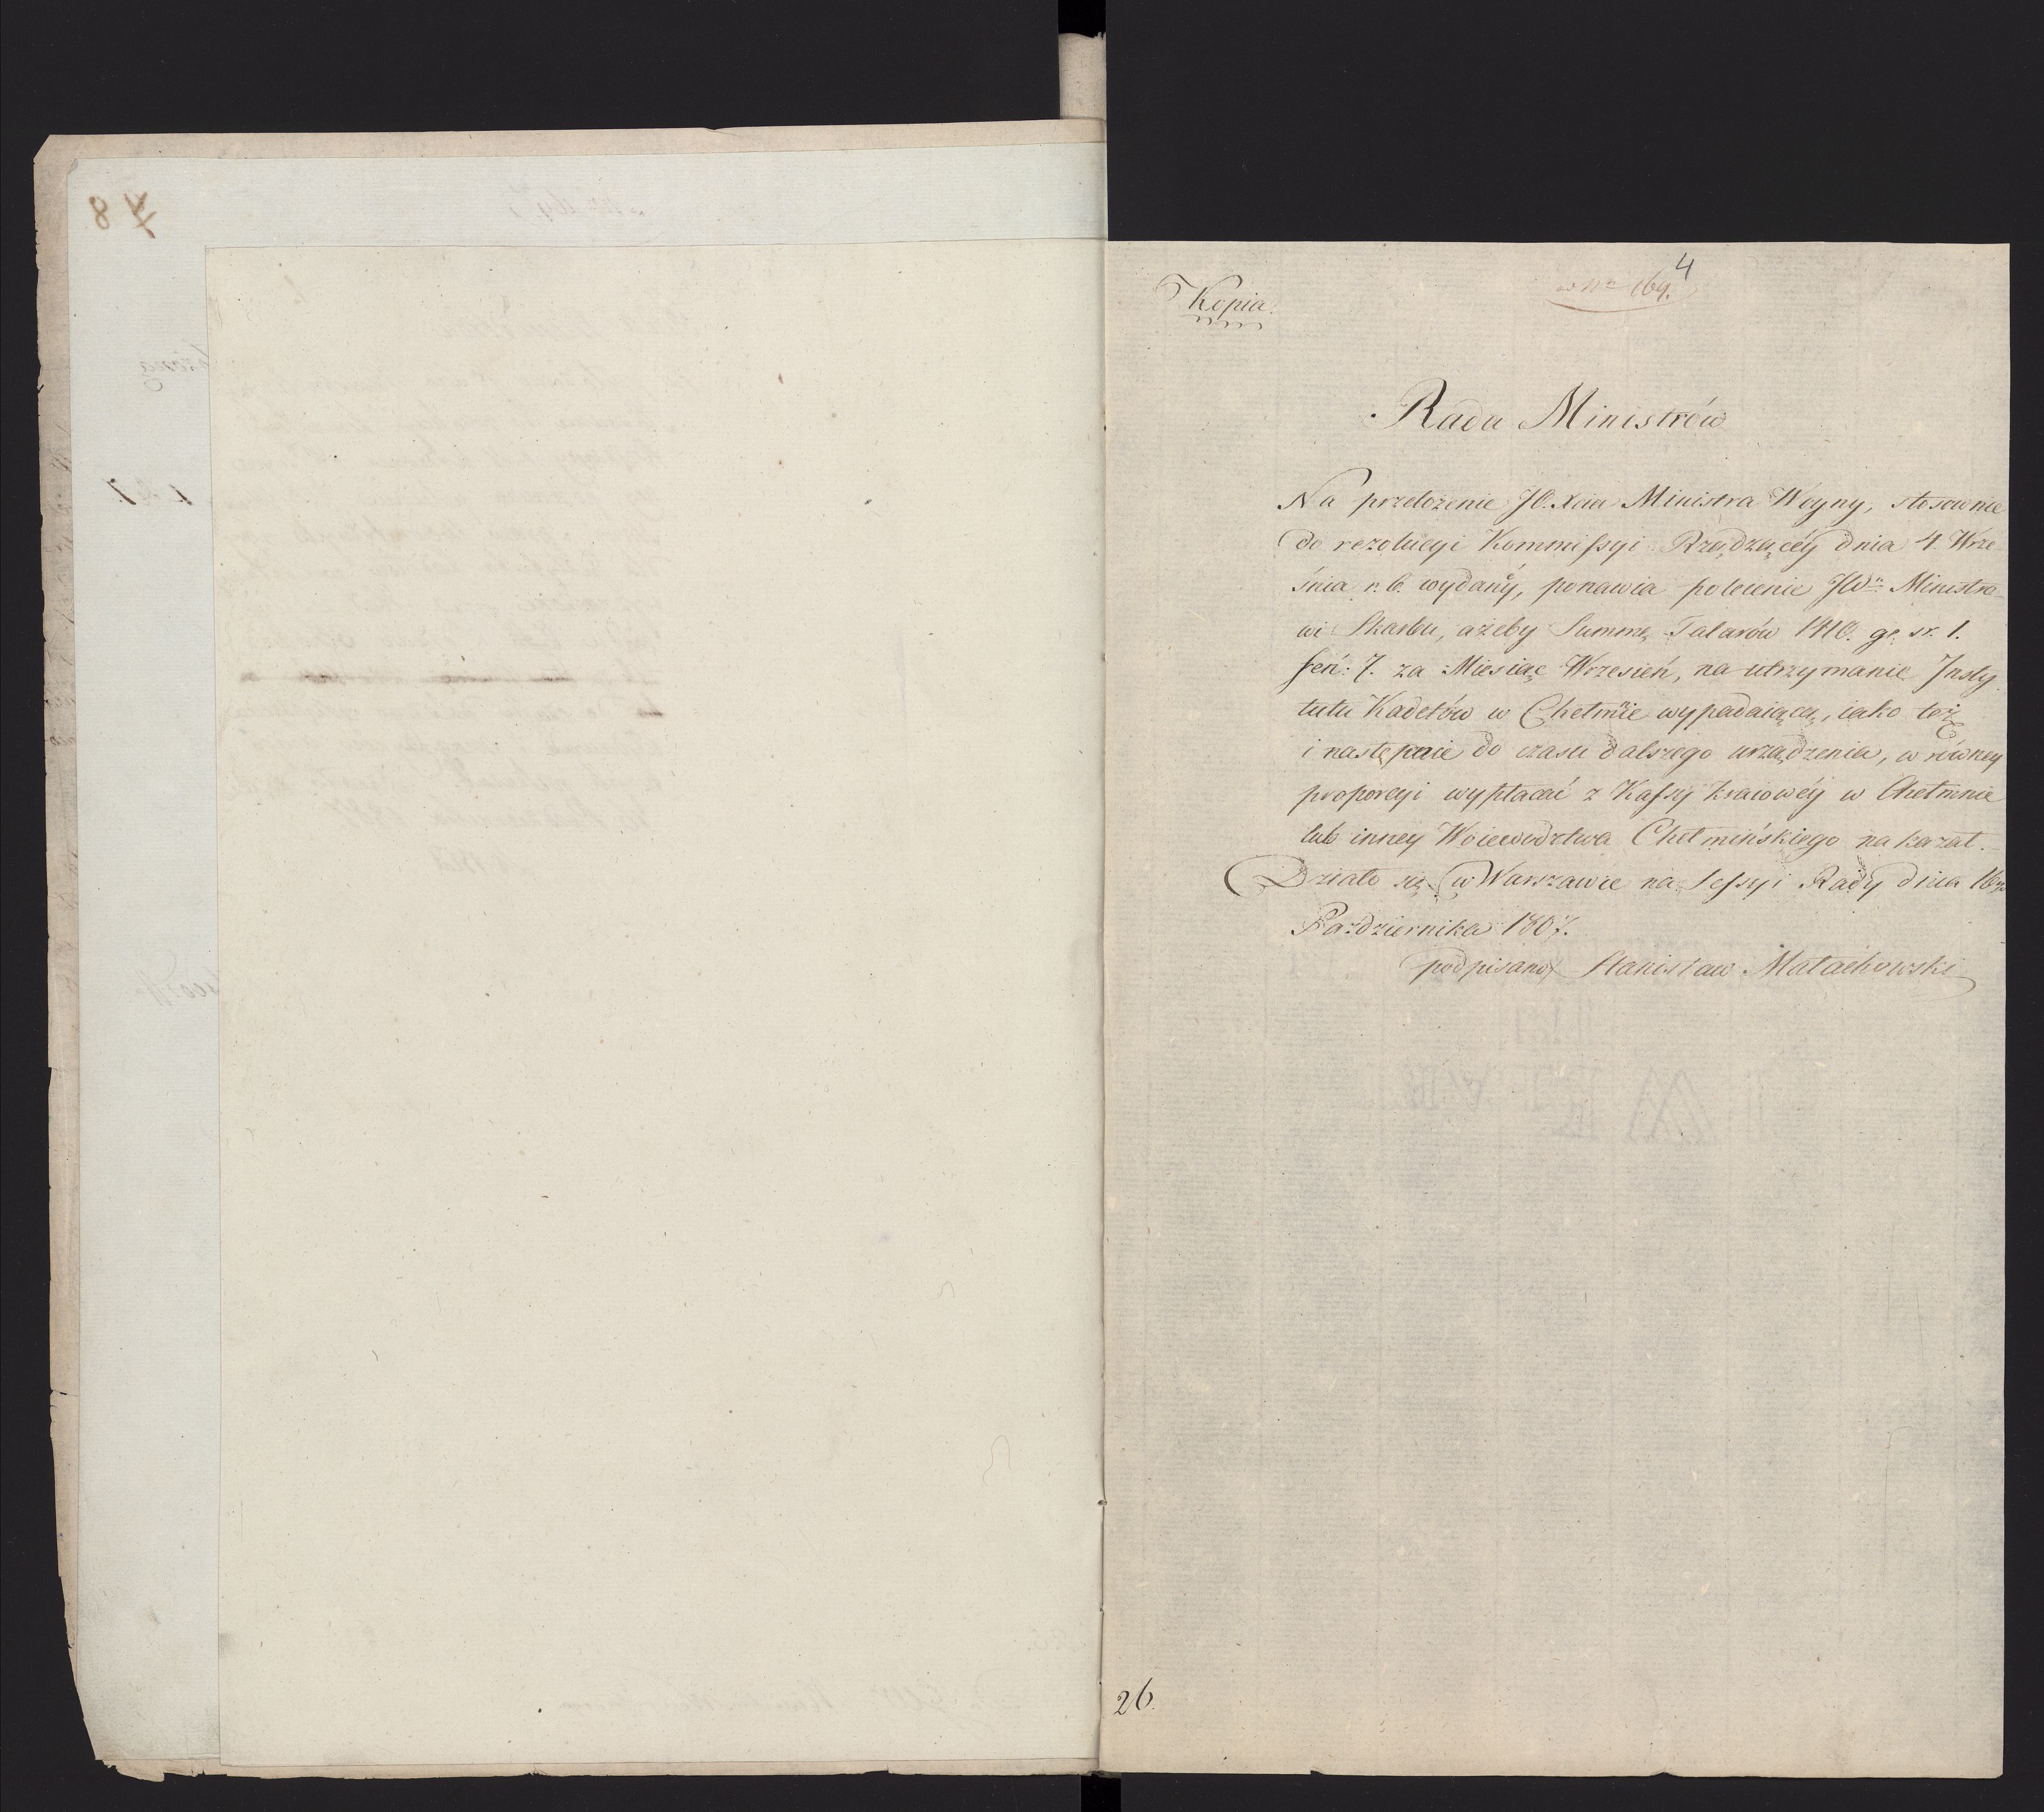 4
w No 169.
Kopia.
Rada Ministrów
Na przełożenie JO. Xcia Ministra Woyny, stosownie
do rezolucyi Kommissyi Rządzącéy dnia 4. Wrze-
śnia r. b. wydanéy, ponawia polecenie JWu Ministro-
wi Skarbu, ażeby Summę Talarów 1410. gr. sr. 1.
fen: 7. za Miesiąc Wrzesień, na utrzymanie Insty-
tutu Kadetów w Chełmnie wypadaiącą, iako też
i następnie do czasu dalszego urządzenia, w równey
proporcyi wypłacać z Kassy kraiowéy w Chełmnie
lub inney Woiewodztwa Chełmińskiego nakazał.
Działo się w Warszawie na Sessyi Rady dnia 16go
Października 1807.
podpisano) Stanisław Małachowski
26.